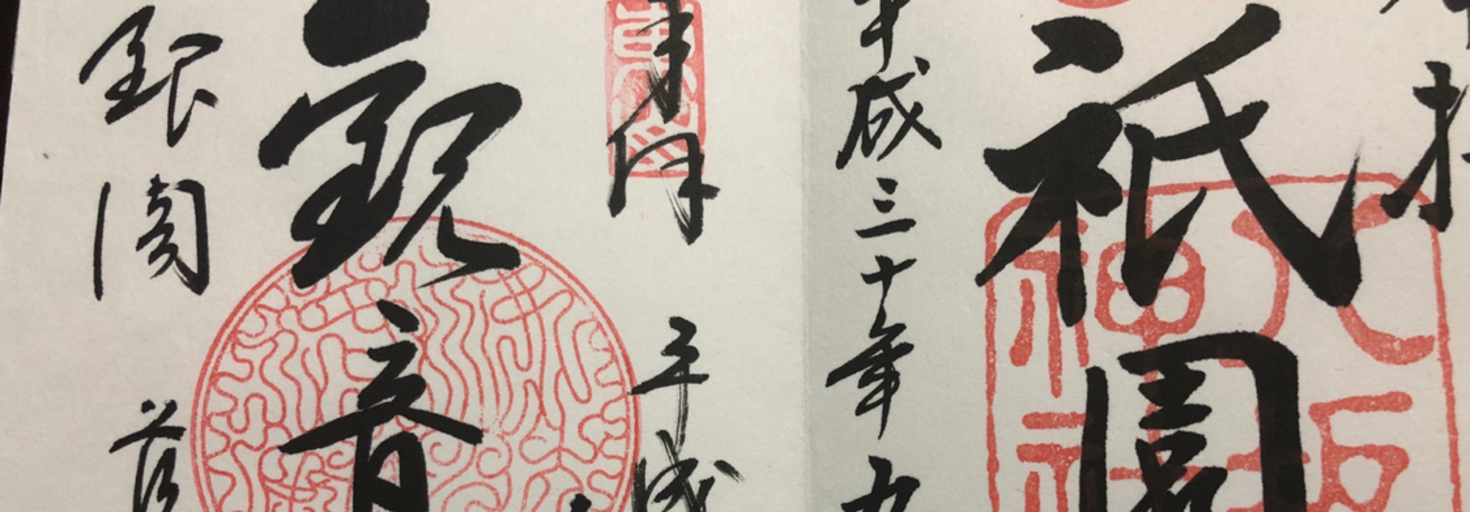 拝
祇園
八坂
神社
平成三十年九
奉拝 平成
観音
銀閣 慈